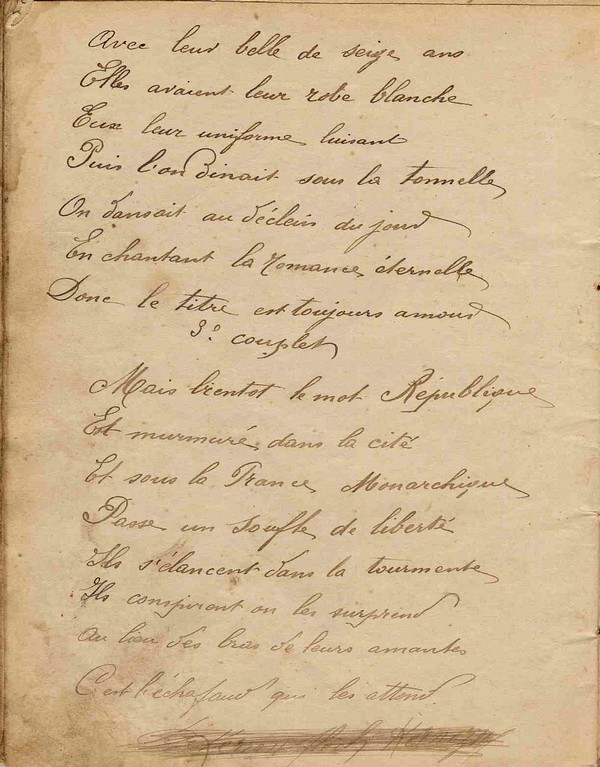 Avec leur belle de seize ans
Elles avaient leur robe blanche
Eux leur uniforme luisant
Puis l'on Dinait sous la tonnelle
On dansait au déclein du jour
En chantant la romance éternelle
Donc le titre est toujours amour
3e couplet
Mais bientot le mot République
Est murmuré dans la cité
Et sous la France Monarchique
Passe un souffle de liberté
Ils s'élancent dans la tourmente
Ils conspirent on les surprend
Au lieu des bras de leurs amantes
C'est l'échafaud qui les attend.